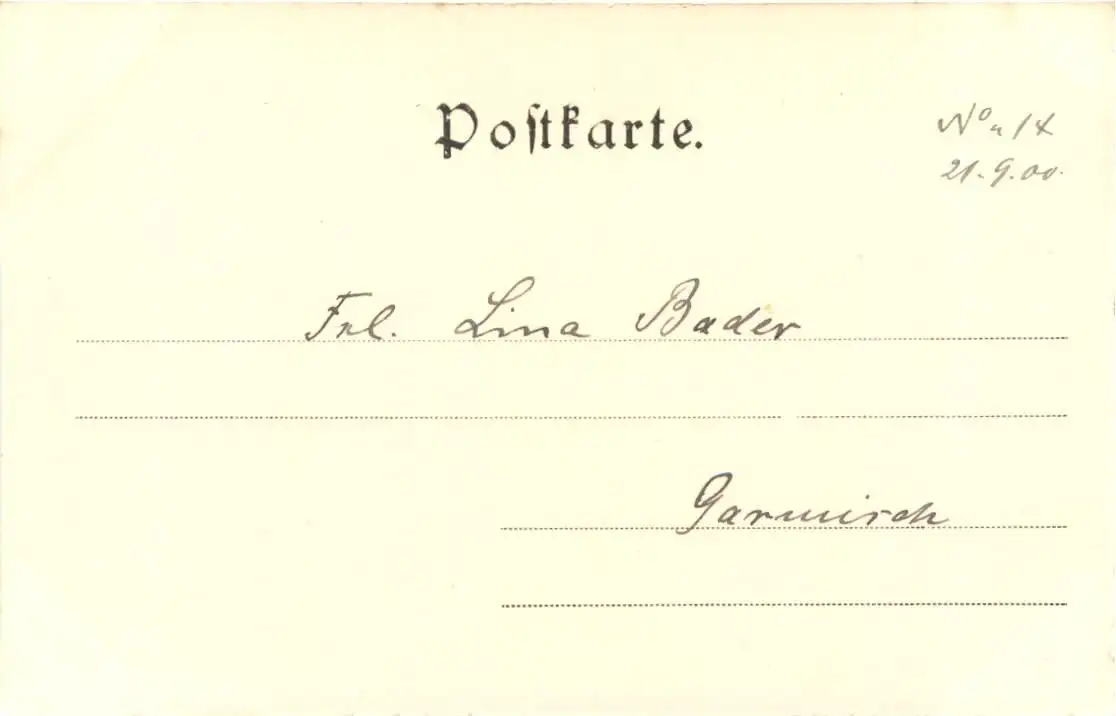 Postkarte.
No
21.9.00.
Frl. Lina Bader
Garmisch